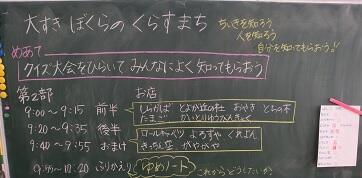 大すき ぼくらの くらすまち
ちいきを知ろう
人を知ろう
自分を知ってもらう!!
めあて
クイズ大会をひらいて みんなによく知ってもらおう
第2部 お店
9:00〜9:15 前半
しらかば とよか丘の杜 おやき とちの木
たまご
9:20〜9:35 後半
ロールキャベツ よろずや くれよん
9:40〜9:55 おまけ
やかやか
ふりかえり ゆめノート これからどうしたいか?